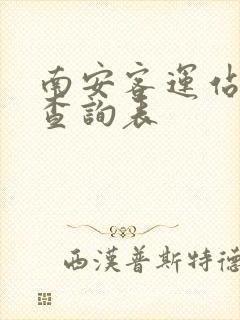 南安客運佔
查詢表
西漢普斯特德